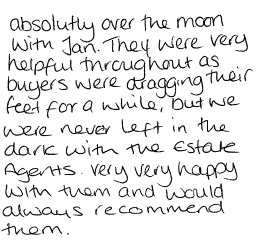 absolutly over the moon
with Jan. They were very
helpful throughout as
buyers were dragging their
feet for a while, but we
were never left in the
dark with the Estate
Agents. very very happy
with them and would
always recommend
them.